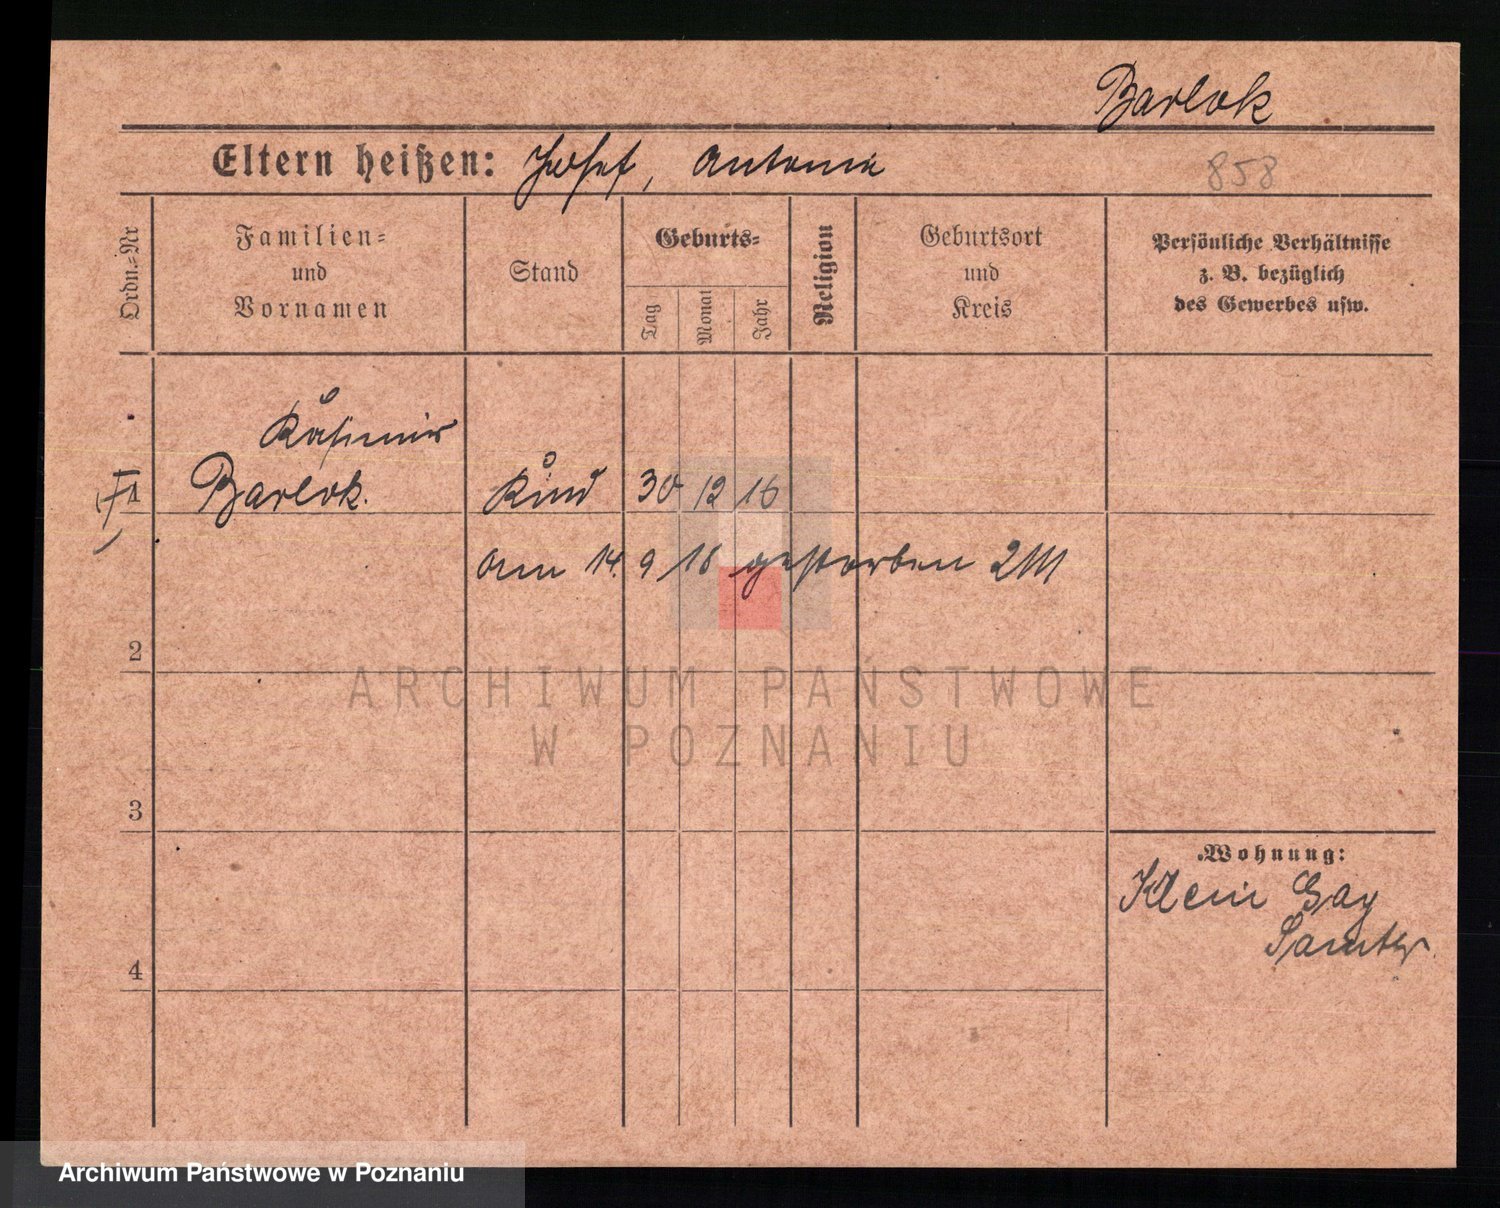 Barlok
Eltern heißen: Josef, Antonia
858
Ordn.=Nr
Familien=
und
Vornamen
Stand
Geburts=
Tag
Monat
Jahr
Religion
Geburtsort
und
Kreis
Persönliche Verhältnisse
z. B. bezüglich
des Gewerbes usw.
Kasimir
1 Barlok. Kind 30 12 16
am 14. 9 18 gestorben
2
3
4
Wohnung:
Klein Gay
Samter
ARCHIWUM PAŃSTWOWE
W POZNANIU
Archiwum Państwowe w Poznaniu